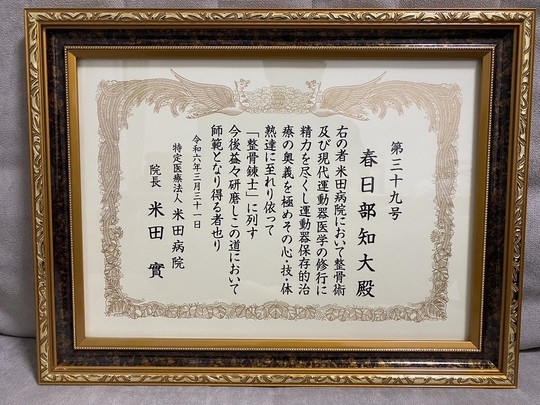 第三十九号
春日部知大殿
右の者 米田病院において整骨術
及び現代運動器医学の修行に
精力を尽くし運動器保存的治
療の奥義を極めその心・技・体
熟達に至れり依って
「整骨錬士」に列す
今後益々研磨しこの道において
師範となり得る者也り
令和六年三月三十一日
特定医療法人 米田病院
院長 米田 實